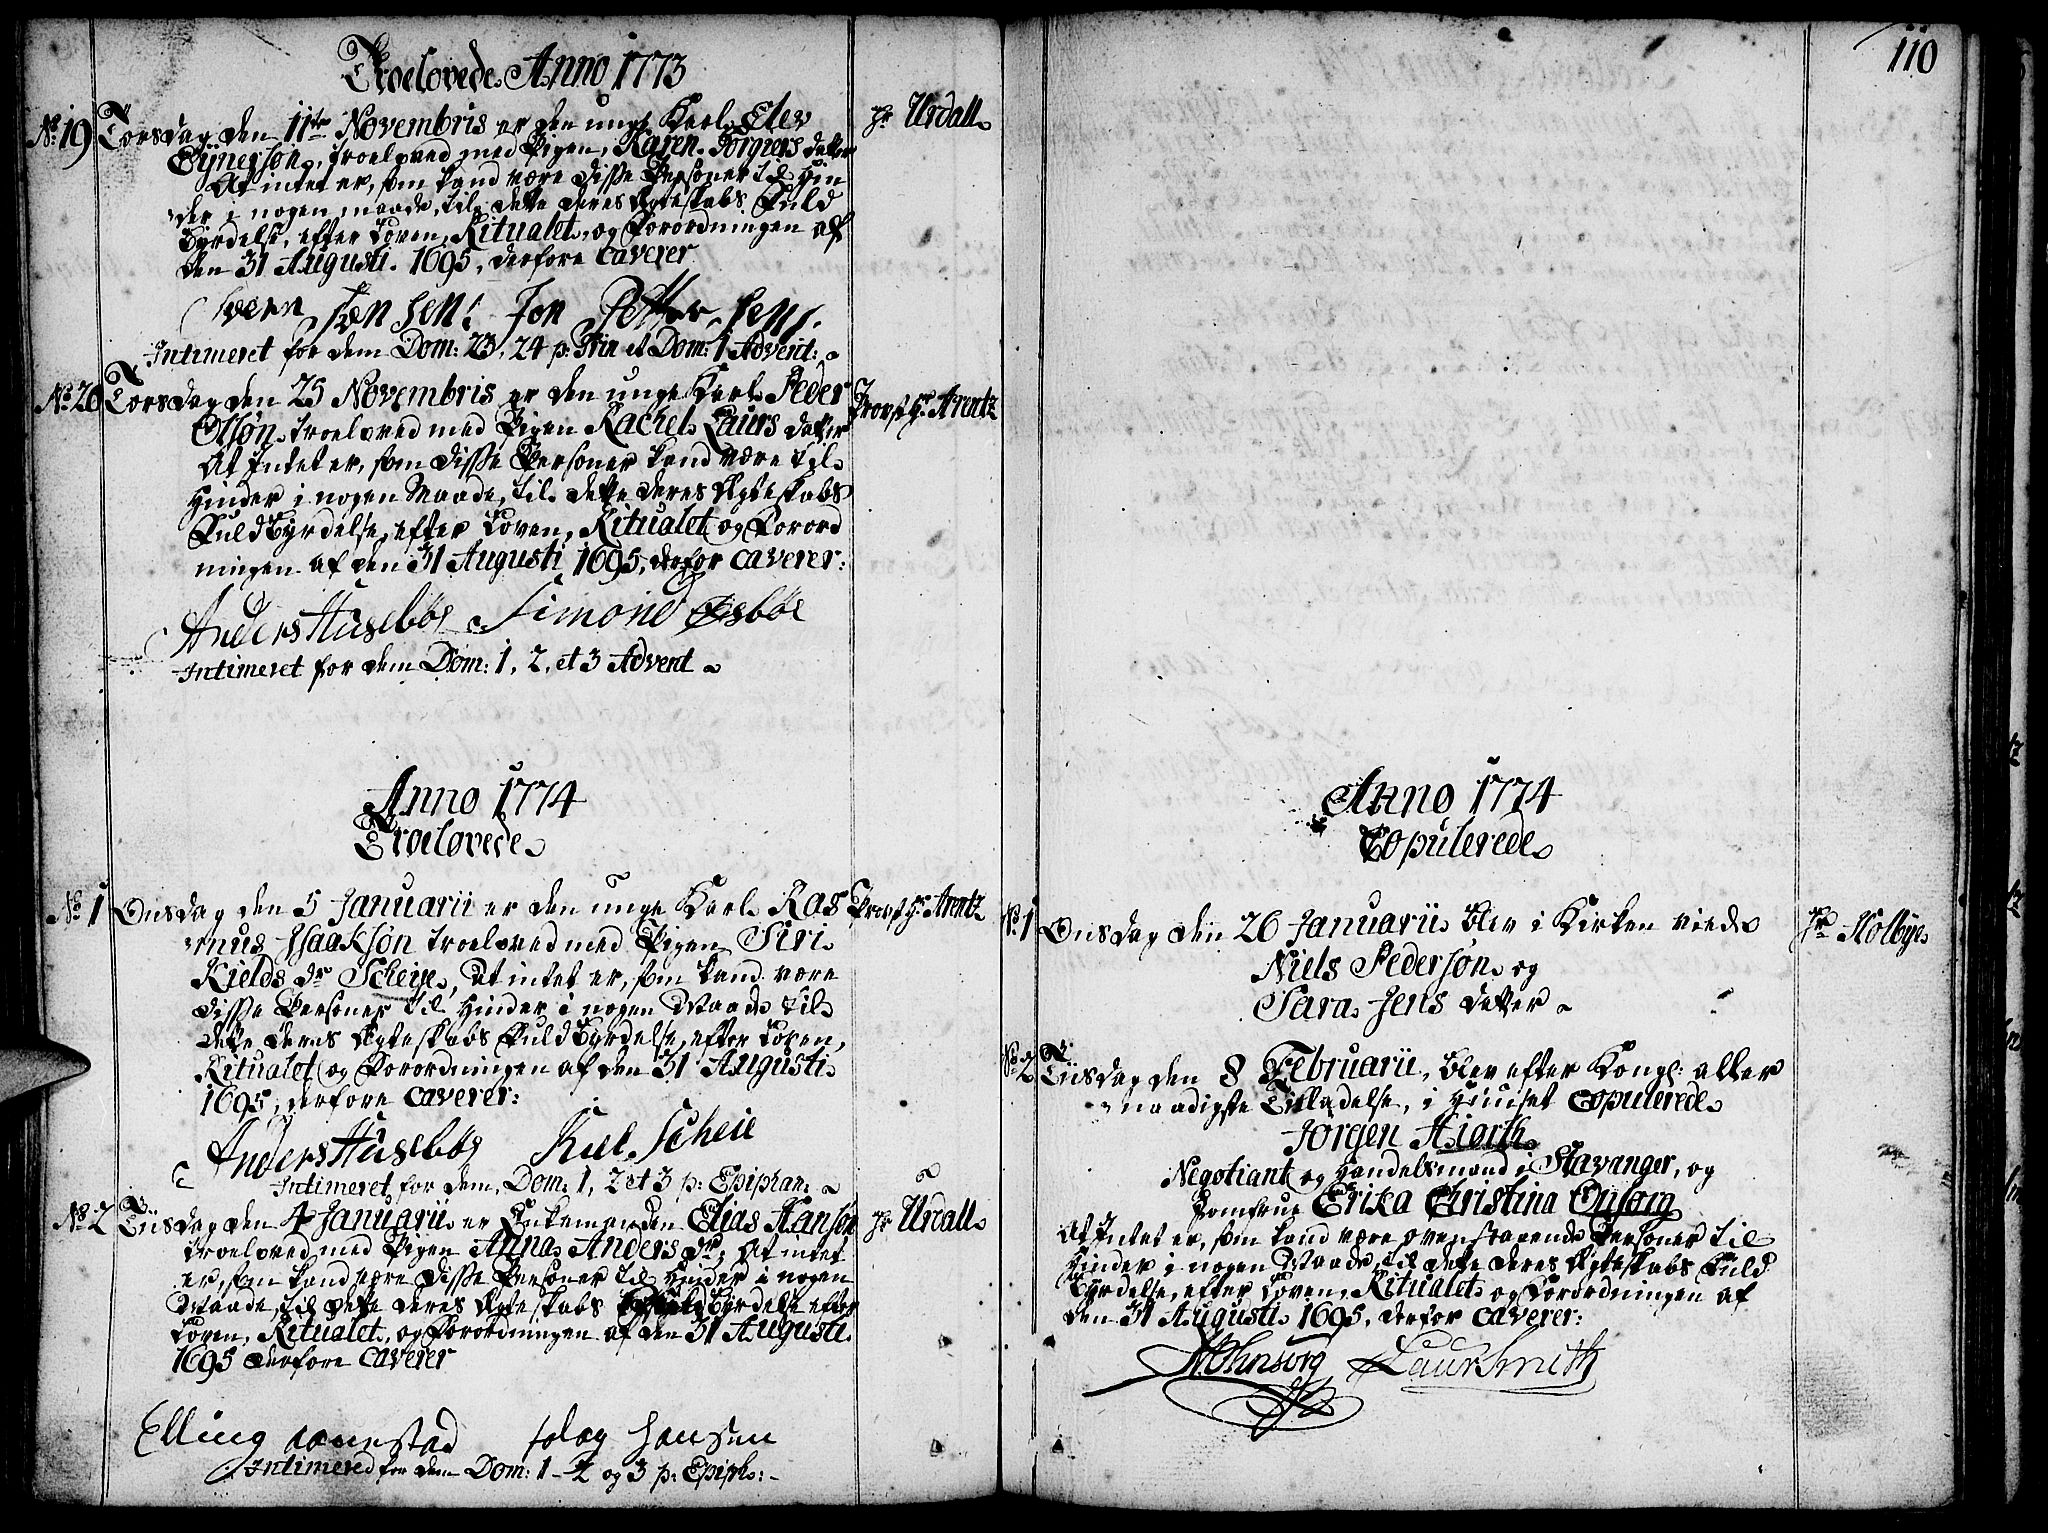 Troelovede Anno 1773
No: 19 Torsdag den 11te Novembris er den unge Karl Elev Hr Urdall
Ejnersøn, troeloved med Pigen, Karen Torgiers datter
At intet er, som kand være disse Personer til Hin
der i nogen maade, til dette deres Ægteskabs Fuld
Byrdelse, efter Loven, Ritualet, og Forordningen af
den 31 Augusti 1695, derfore caverer
Svenn Jonsen. Jon Pettersen.
Intimeret for dem Dom: 23, 24 p: Trin et Dom: 1 Advent:
No: 20 Torsdag den 25 Novembris er den unge Karl Peder Provst Hr Arentz
Olsøn troeloved med Pigen Rachel Laurs datter
At Intet er, som disse Personer kand være til
Hinder i nogen Maade, til dette deres Ægteskabs
Fuldbyrdelse, efter Loven, Ritualet og Forord
ningen af den 31 Augusti 1695, derfor caverer:
Anders Husebøe Simond
Intimeret for dem Dom: 1, 2, et 3 Advent
Anno 1774
Troelovede
No: 1 Onsdag den 5 Januarii er den unge Karl Ras Provst Hr Arentz
mus Isaaksøn troeloved med Pigen Siri
Kields dr Scheije, At intet er, som kand være
disse Personer til Hinder i nogen Maade til
dette deres Ægteskabs Fuldbyrdelse, efter Loven,
Ritualet og Forordningen af den 31 Augusti
1695, derfore caverer:
Anders Husebøe Kiel Scheie
Intimeret for dem, Dom: 1, 2 et 3 p: Epiphan:
No: 2 Tiisdag den 4 Januarii er Enkemanden Elias Hansøn Hr Urdall
troeloved med Pigen Anna Anders dr; At intet
er, som kand være disse Personer til Hinder i nogen
Maade, til dette deres Ægteskabs Fuldbyrdelse efter
Loven, Ritualet, og Forordningen af den 31 Augusti
1695 derfore caverer
Elling Hansen
Intimered for dem Dom: 1 - 2 og 3 p: Epiph:
110
Anno 1774
Copulerede
No: 1 Onsdag den 26 Januarii blev i Kirken viede Hr Holbye
Niels Pedersøn og
Sara Jens datter
No: 2 Tiisdag den 8 Februarii, blev efter Kongl: aller
naadigste Tilladelse, i Huuset Copulerede
Jørgen Hiorth
Negotiant og Handelsmand i Stavanger, og
Jomfrue Erika Christina
At Intet er, som kand være ovenstaaende Personer til
Hinder i nogen Maade, til dette deres Ægteskabs Fuld
Byrdelse, efter Loven, Ritualet og Forordningen af
den 31 Augusti 1695, derfor caverer:
Laur Smith